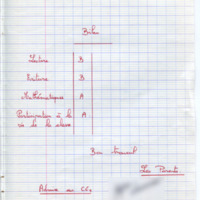 Bilan
Lecture B
Ecriture B
Mathématiques A
Participation à la A
vie de la classe
Bon travail
Les Parents
Admise au CE2